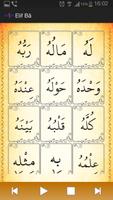 16:02
Elif Bâ
لَهُ مَالُهُ رَبُّهُ
وَحْدَهُ حَوْلَهُ عِنْدَهُ
كُلَّهُ قَلْبُهُ بَيْتُهُ
عِلْمُهُ بِهِ مِثْلِهِ